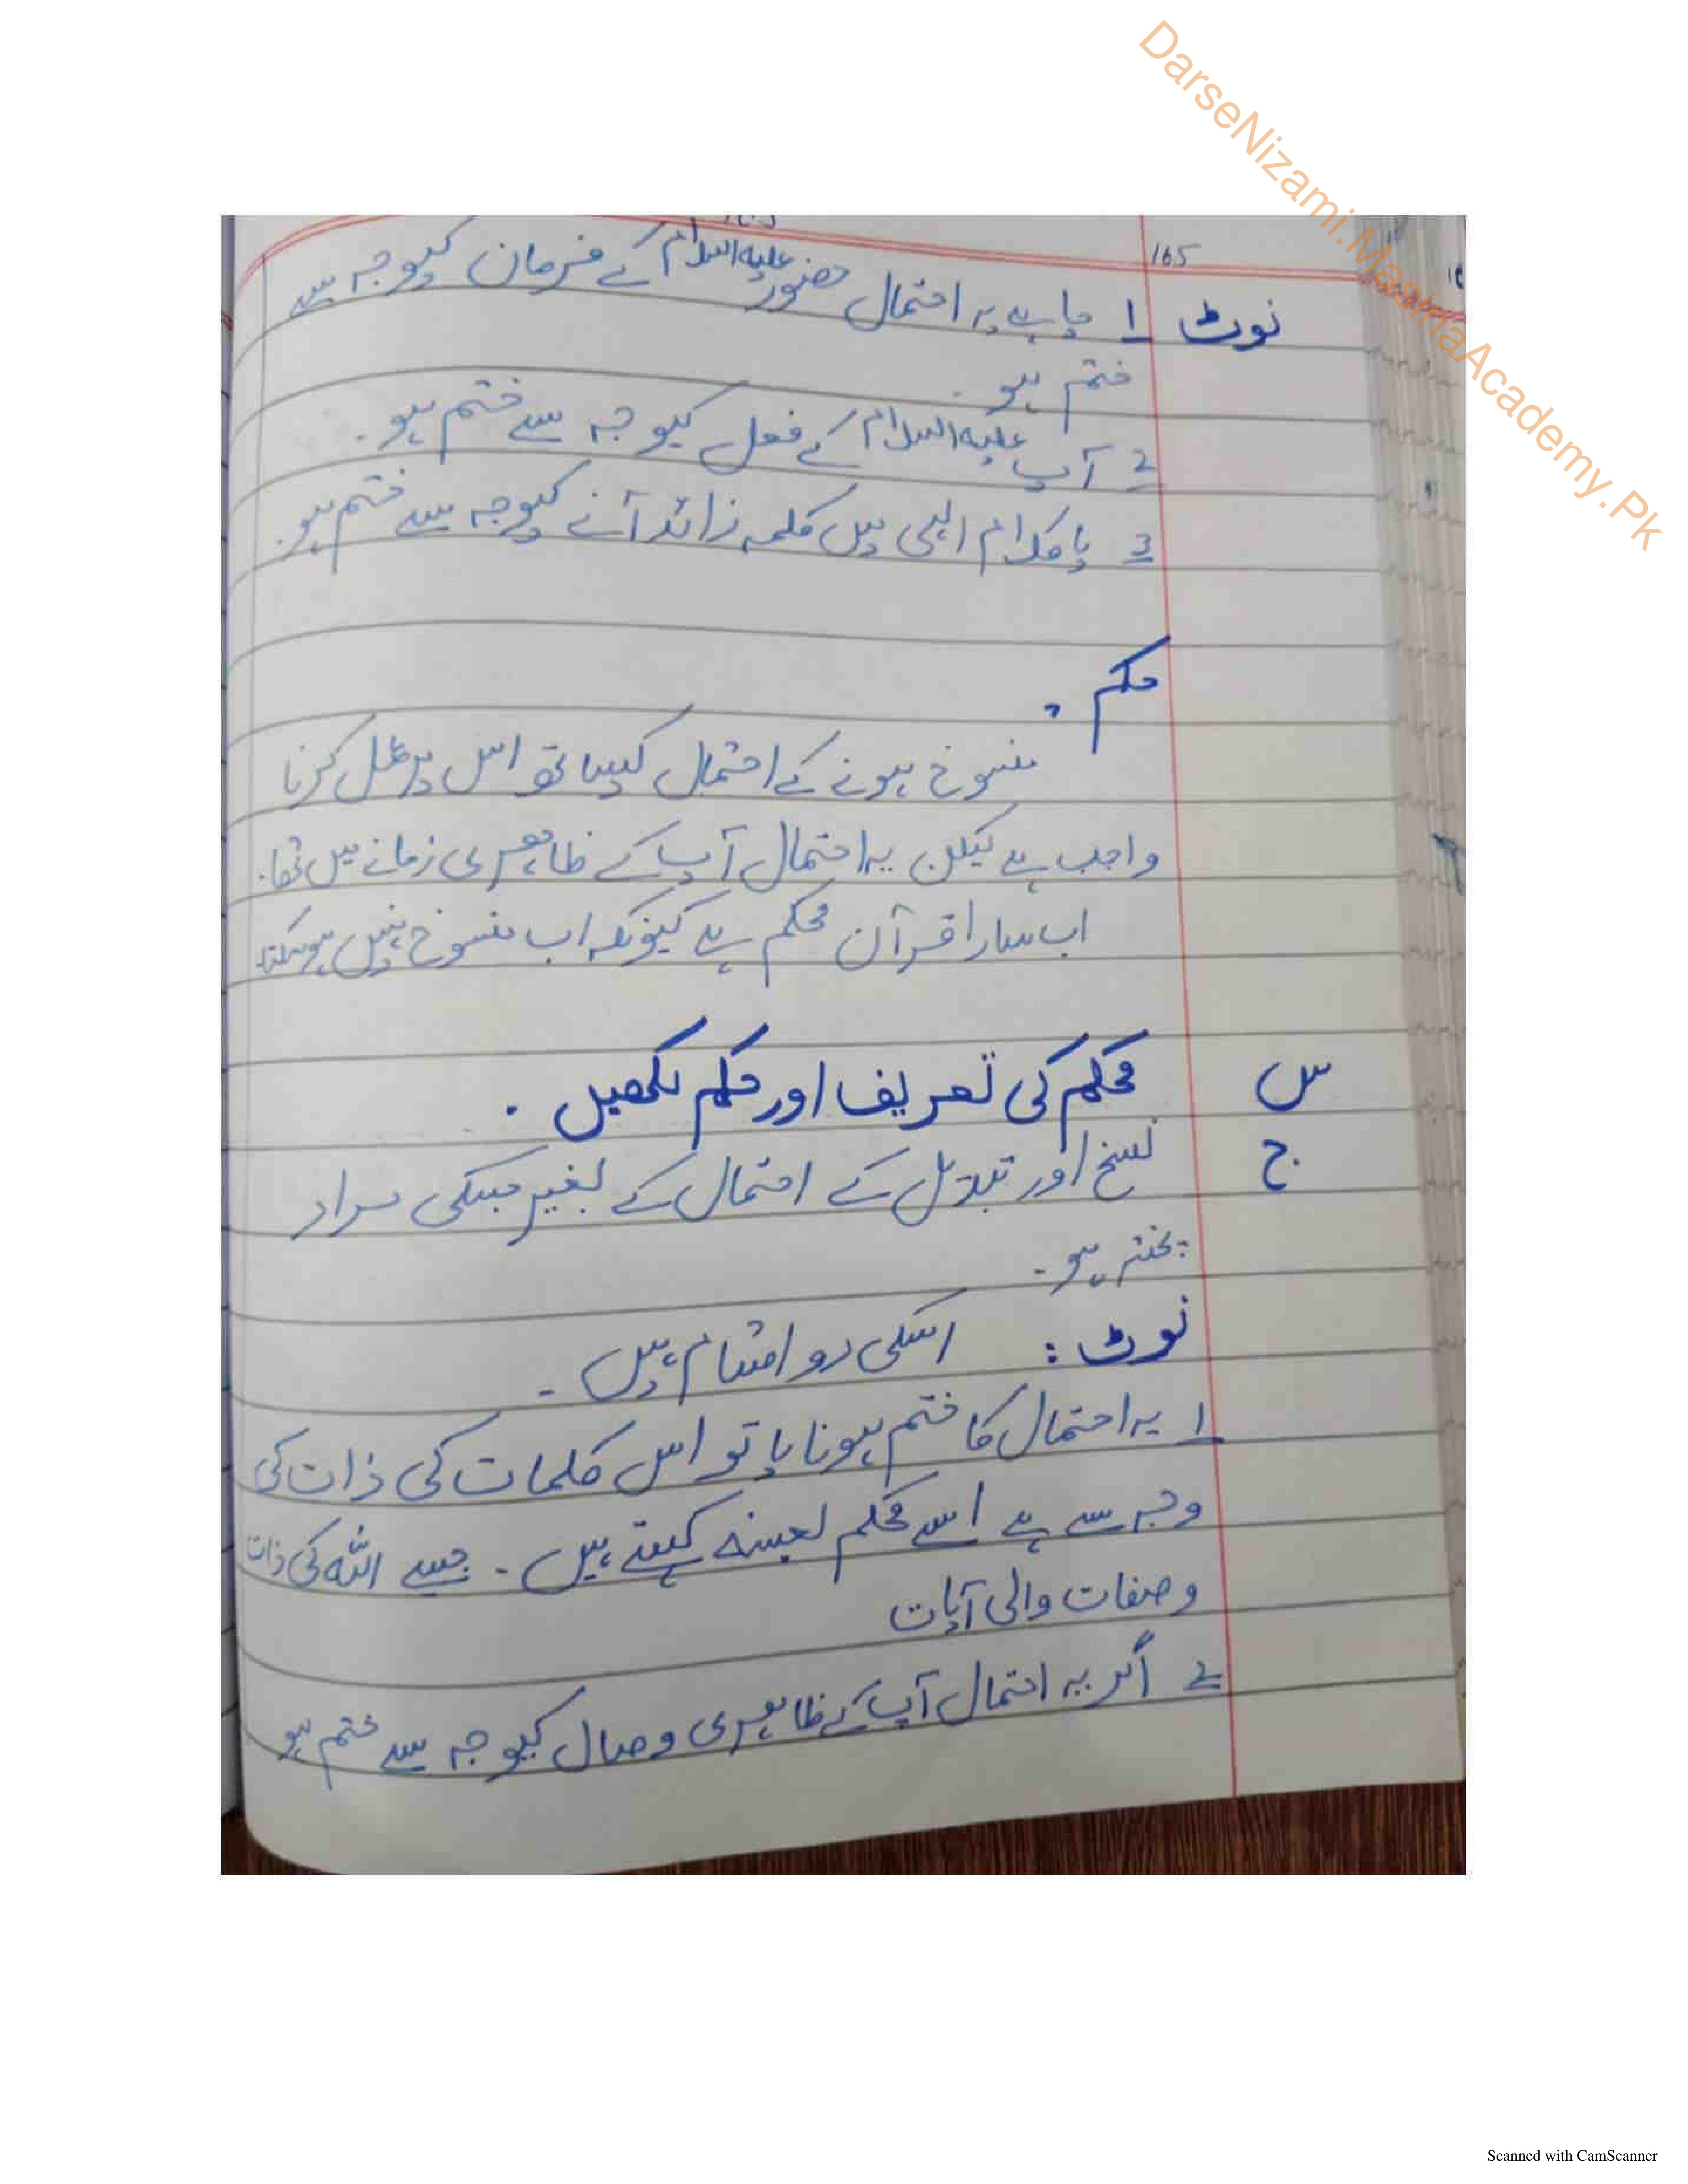 DarseNizami.MadinaAcademy.Pk
165
نوٹ 1 چاہے یہ احتمال حضور علیہ السلام کے فرمان کیوجہ سے
ختم ہو۔
2 آپ علیہ السلام کے فعل کیوجہ سے ختم ہو۔
3 یا کلام الہی میں کلمہ زائد آنے کیوجہ سے ختم ہو۔
حکم :
منسوخ ہونے کے احتمال کیساتھ اس پر عمل کرنا
واجب ہے لیکن یہ احتمال آپ کے ظاہری زمانے میں تھا۔
اب سارا قرآن محکم ہے کیونکہ اب منسوخ نہیں ہوسکتا
س محکم کی تعریف اور حکم لکھیں ۔
ج نسخ اور تبدیل کے احتمال کے بغیر جسکی مراد
پختہ ہو۔
نوٹ : اسکی دو اقسام ہیں ۔
1 یہ احتمال کا ختم ہونا یا تو اس کلمات کی ذات کی
وجہ سے ہے اسے محکم لعینہ کہتے ہیں ۔ جیسے اللہ کی ذات
و صفات والی آیات
2 اگر یہ احتمال آپ کے ظاہری وصال کیوجہ سے ختم ہو
Scanned with CamScanner